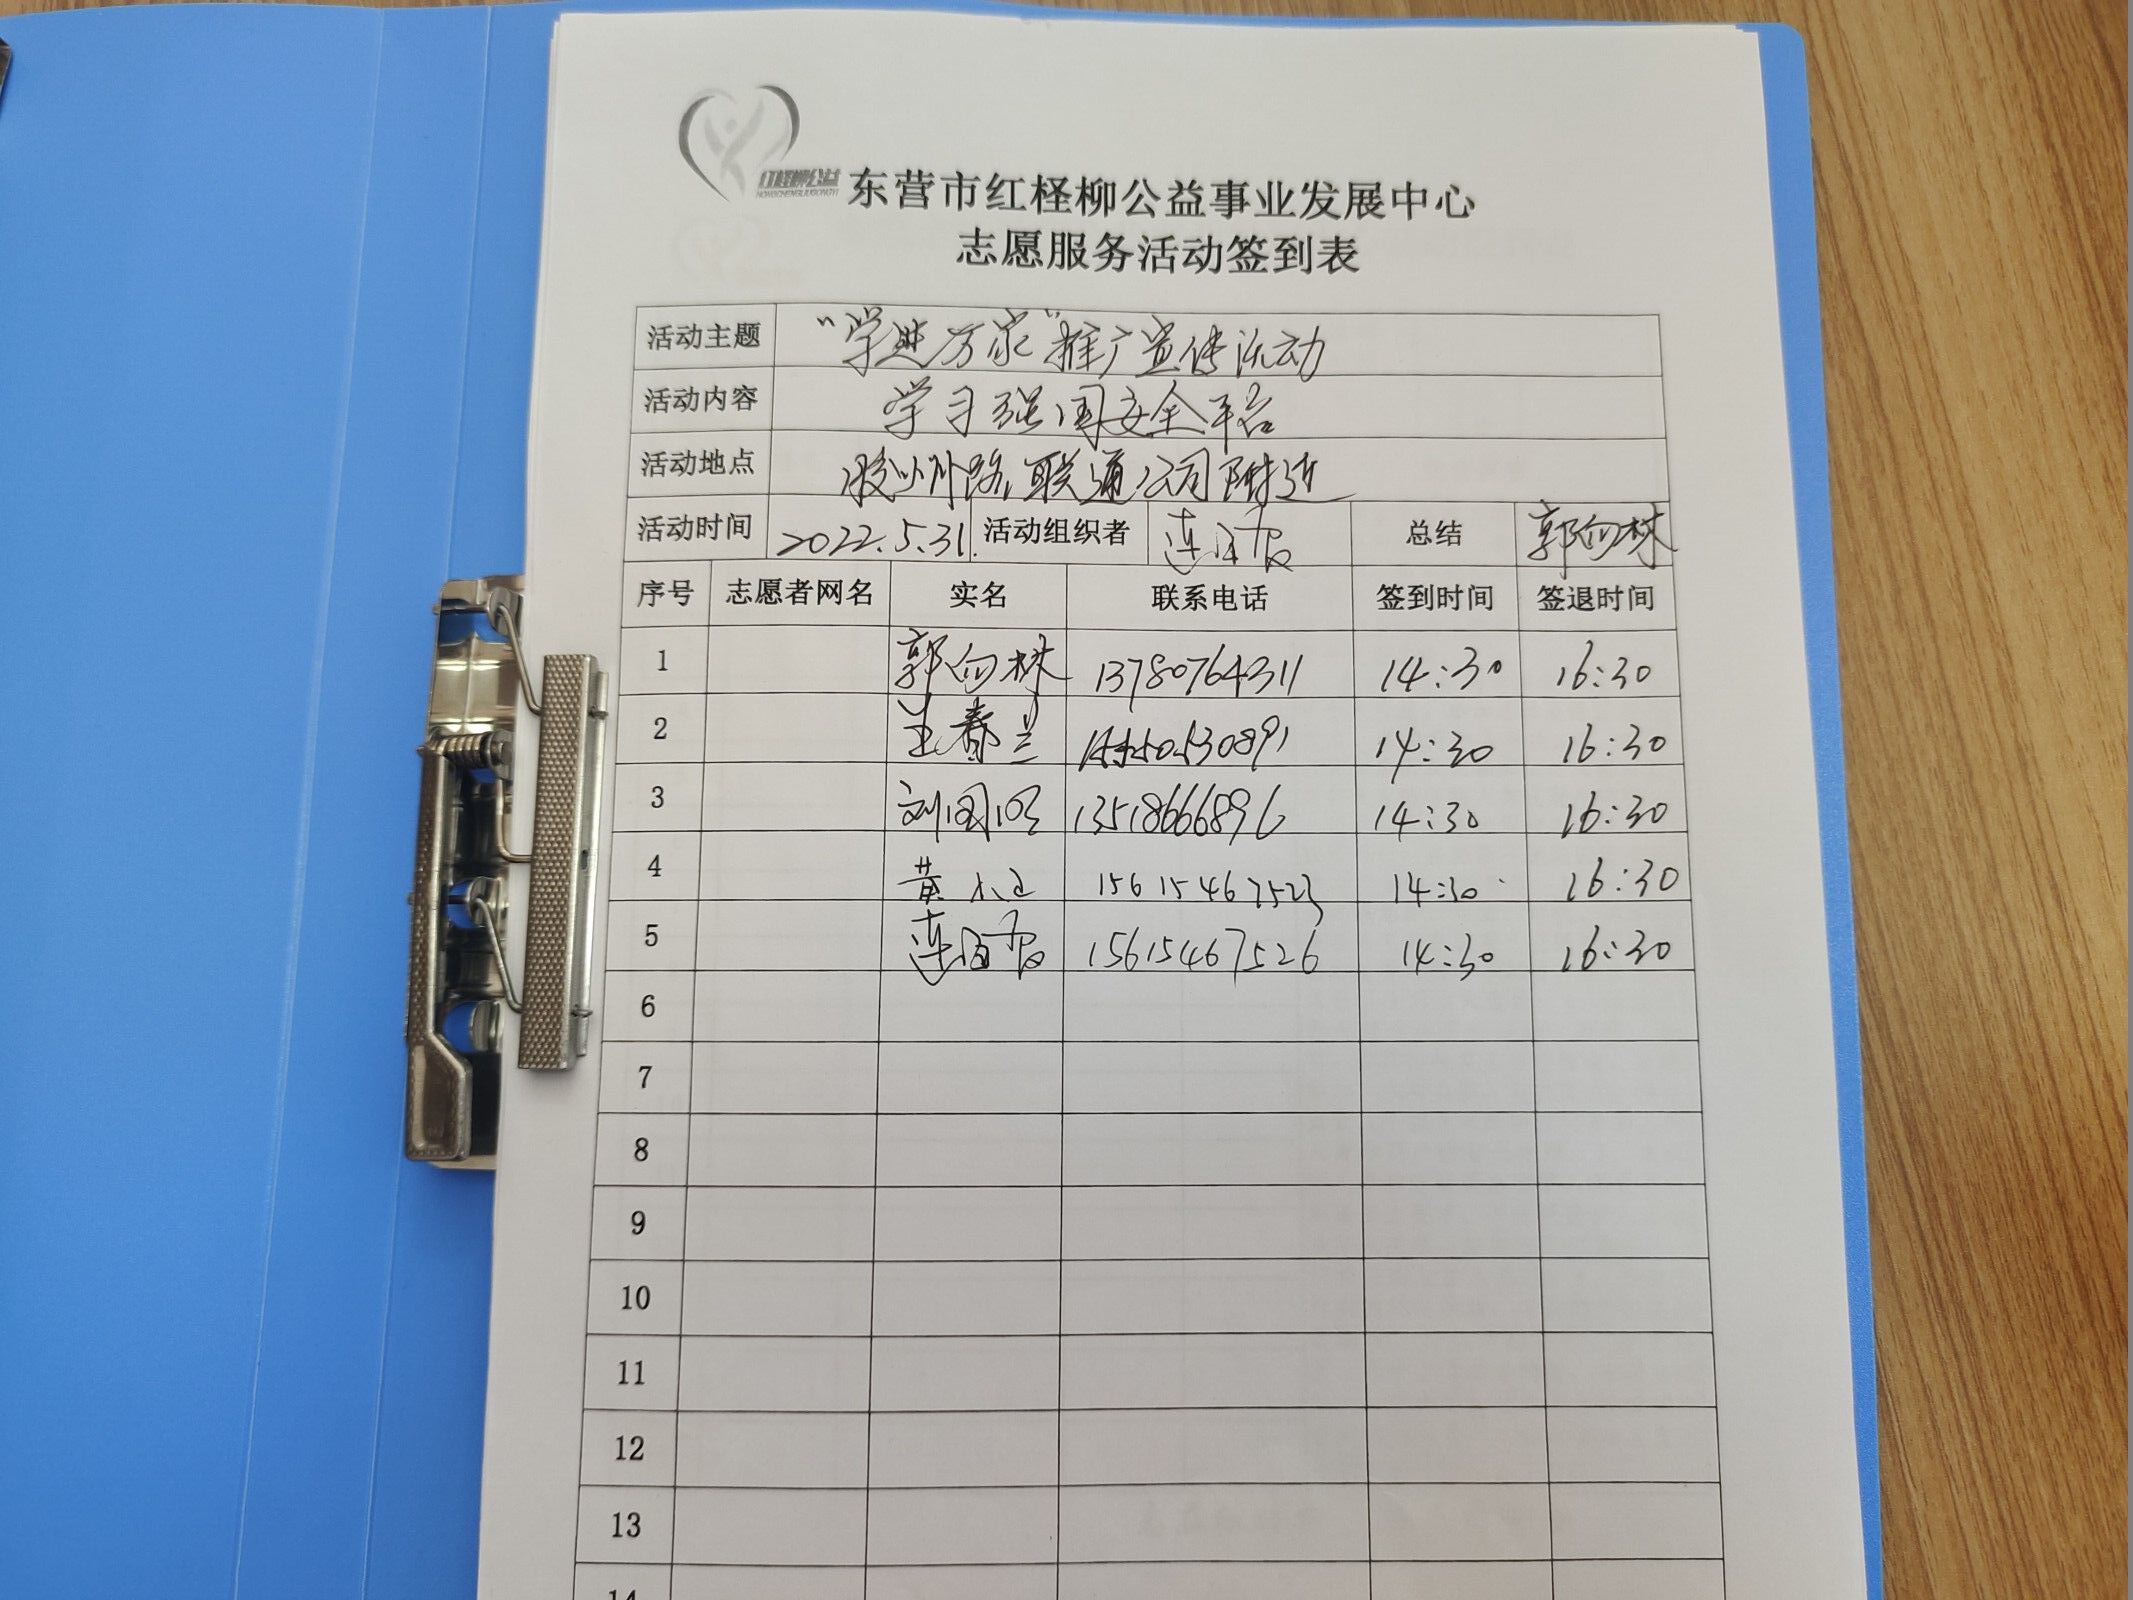 红柽柳公益
HONGCHENGLIUGONGYI
东营市红柽柳公益事业发展中心
志愿服务活动签到表
活动主题 “学进万家”推广宣传活动
活动内容 学习强国安全平台
活动地点 胶州路联通公司附近
活动时间 2022.5.31. 活动组织者 连 总结 郭向林
序号 志愿者网名 实名 联系电话 签到时间 签退时间
1 郭向林 13780764311 14:30 16:30
2 王春兰 14:30 16:30
3 刘国明 13518666896 14:30 16:30
4 黄 15615467523 14:30 16:30
5 连 15615467526 14:30 16:30
6
7
8
9
10
11
12
13
14